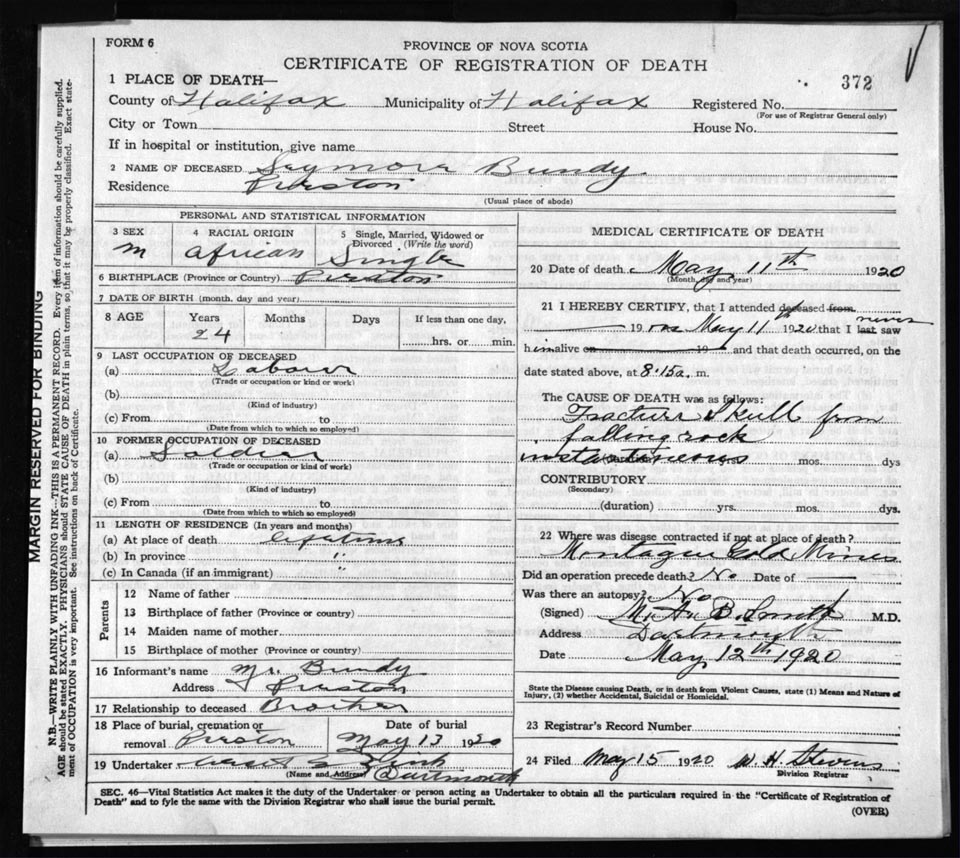 FORM 6
PROVINCE OF NOVA SCOTIA
CERTIFICATE OF REGISTRATION OF DEATH
372
1 PLACE OF DEATH—
County of Halifax Municipality of Halifax Registered No.
(For use of Registrar General only)
City or Town Street House No.
If in hospital or institution, give name
2 NAME OF DECEASED Seymour Bundy
Residence Preston
(Usual place of abode)
PERSONAL AND STATISTICAL INFORMATION
3 SEX 4 RACIAL ORIGIN 5 Single, Married, Widowed or Divorced (Write the word)
M African Single
6 BIRTHPLACE (Province or Country) Preston
7 DATE OF BIRTH (month, day and year)
8 AGE Years Months Days If less than one day,
24 hrs. or min.
9 LAST OCCUPATION OF DECEASED
(a) Labourer
(Trade or occupation or kind or work)
(b)
(Kind of industry)
(c) From to
(Date from which to which so employed)
10 FORMER OCCUPATION OF DECEASED
(a) Soldier
(Trade or occupation or kind of work)
(b)
(Kind of industry)
(c) From to
(Date from which to which so employed)
11 LENGTH OF RESIDENCE (In years and months)
(a) At place of death lifetime
(b) In province "
(c) In Canada (if an immigrant) "
Parents
12 Name of father
13 Birthplace of father (Province or country)
14 Maiden name of mother
15 Birthplace of mother (Province or country)
16 Informant's name Mr. Bundy
Address Preston
17 Relationship to deceased Brother
18 Place of burial, cremation or removal Preston
Date of burial
May 13 1920
19 Undertaker
(Name and Address) Dartmouth
MEDICAL CERTIFICATE OF DEATH
20 Date of death May 11th 1920
(Month, day and year)
21 I HEREBY CERTIFY, that I attended deceased from never
19 May 11th 1920 that I last saw
him alive on 19 and that death occurred, on the
date stated above, at 8.15 a. m.
The CAUSE OF DEATH was as follows:
Fracture Skull from
falling rock
instantaneous mos. dys
CONTRIBUTORY
(Secondary)
(duration) yrs. mos. dys.
22 Where was disease contracted if not at place of death?
Montague Gold Mines
Did an operation precede death? No Date of
Was there an autopsy? No
(Signed) B. Smith M.D.
Address Dartmouth
Date May 12th 1920
State the Disease causing Death, or in death from Violent Causes, state (1) Means and Nature of
Injury, (2) whether Accidental, Suicidal or Homicidal.
23 Registrar's Record Number
24 Filed May 15 1920 W. H. Stevens
Division Registrar
SEC. 46—Vital Statistics Act makes it the duty of the Undertaker or person acting as Undertaker to obtain all the particulars required in the "Certificate of Registration of
Death" and to fyle the same with the Division Registrar who shall issue the burial permit.
(OVER)
MARGIN RESERVED FOR BINDING
N.B.—WRITE PLAINLY WITH UNFADING INK—THIS IS A PERMANENT RECORD. Every item of information should be carefully supplied.
AGE should be stated EXACTLY. PHYSICIANS should STATE CAUSE OF DEATH in plain terms, so that it may be properly classified. Exact state-
ment of OCCUPATION is very important. See instructions on back of Certificate.